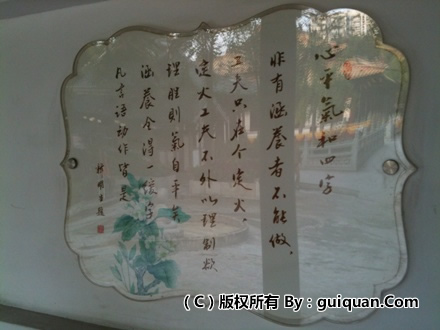 心平氣和四字
非有涵養者不能做，
工夫只在个定火。
定火工夫不外以理制欲
理胜则氣自平矣
涵養全得一缓字
凡言语动作皆是
（C）版权所有 By：guiquan.Com